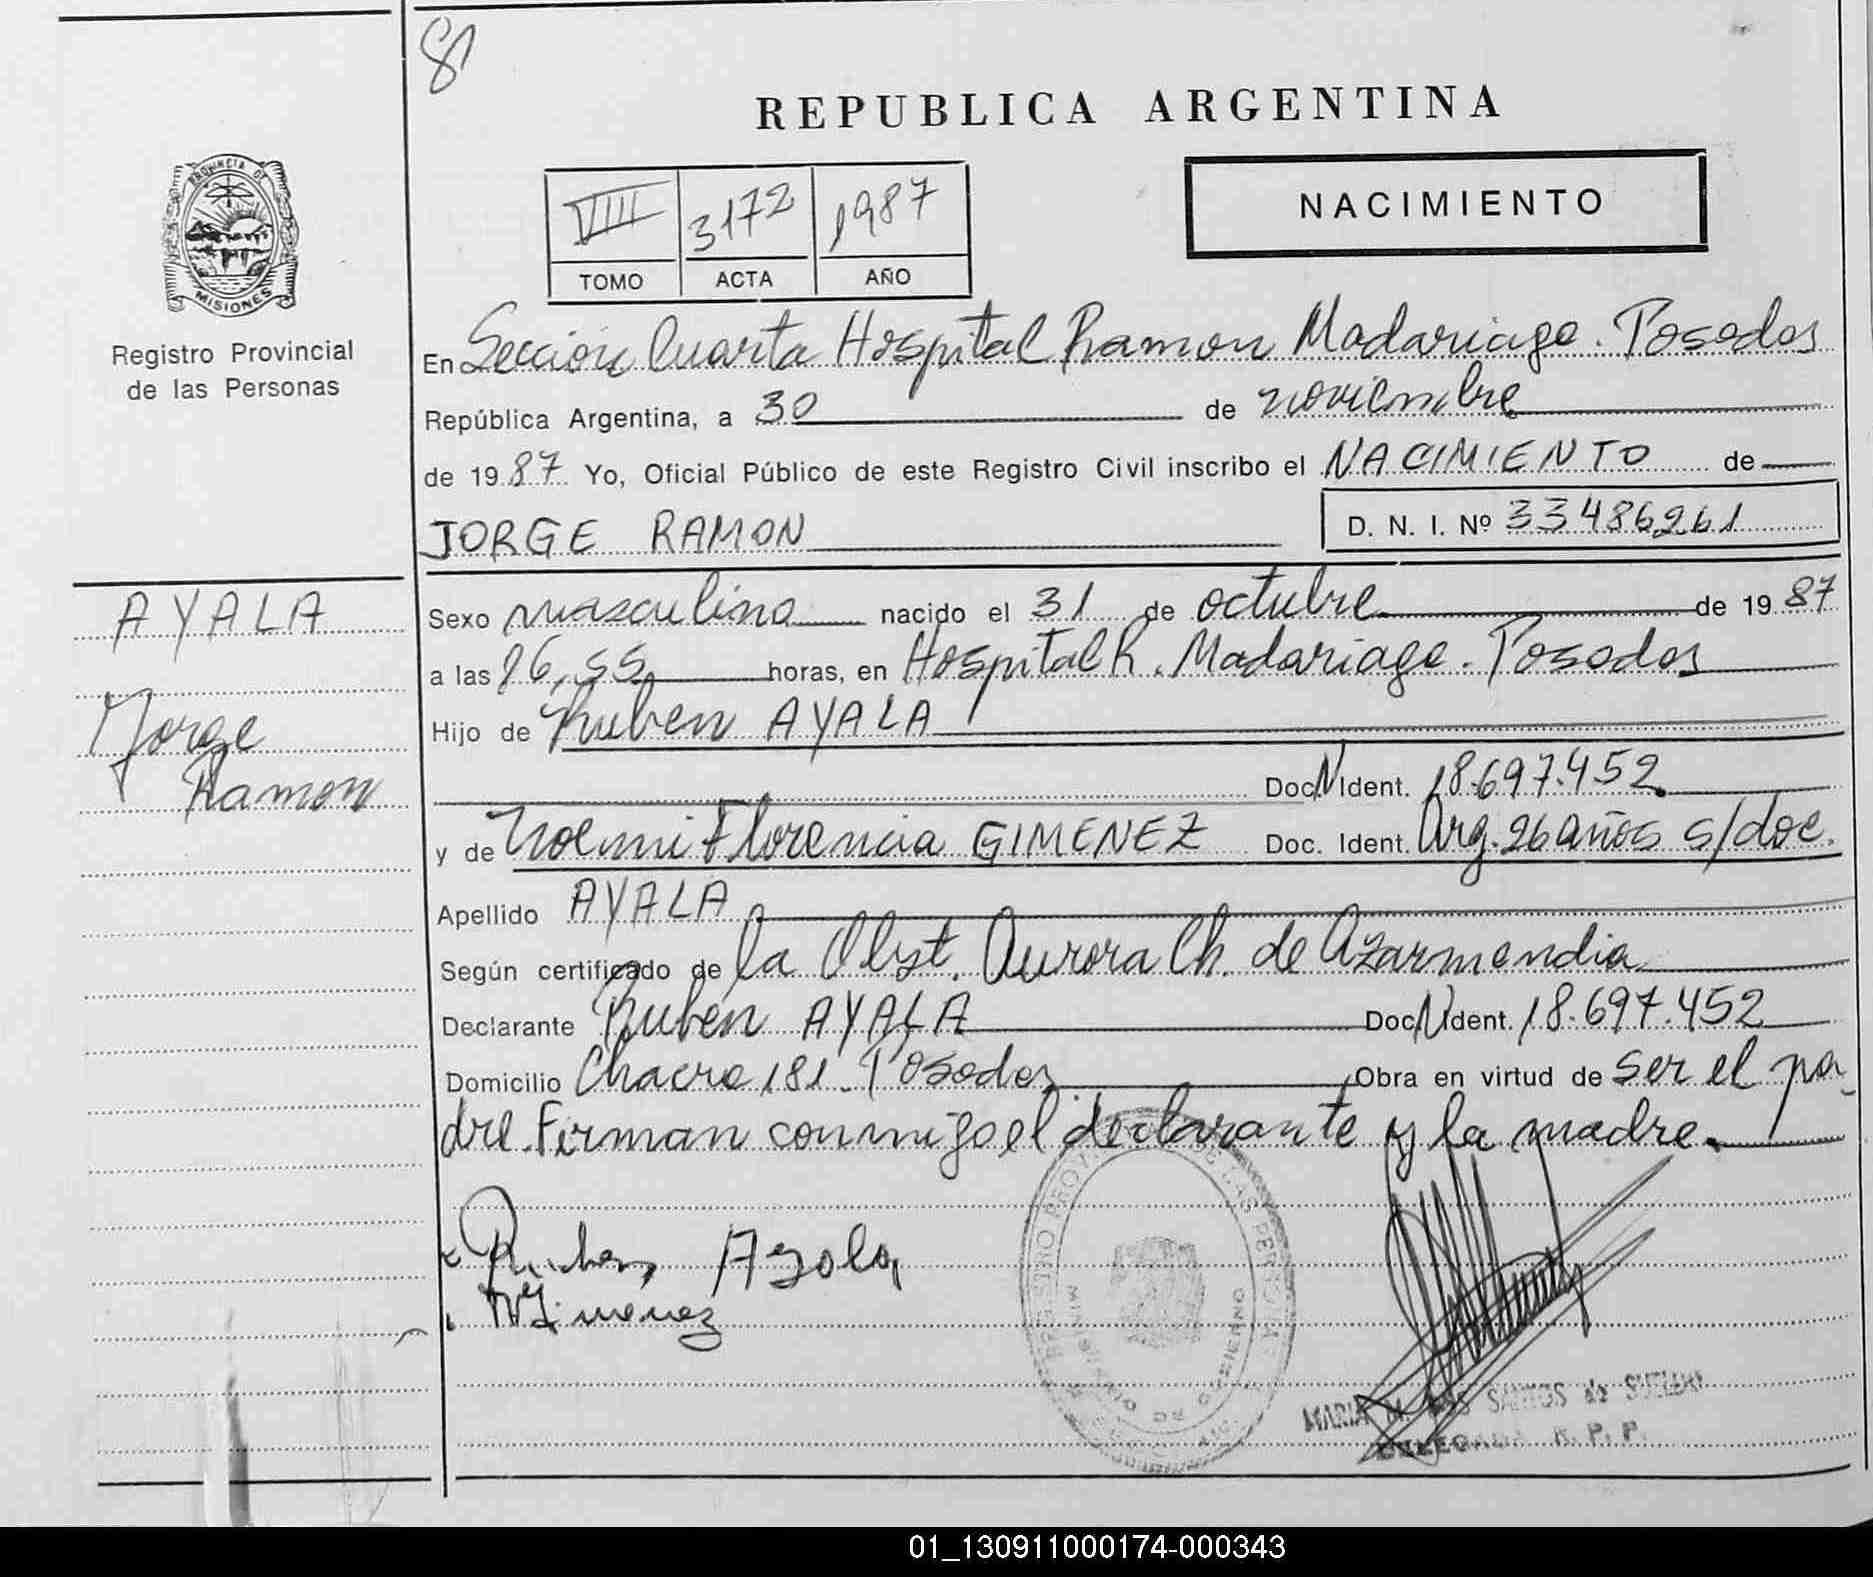 81
REPUBLICA ARGENTINA
PROVINCIA DE
MISIONES
Registro Provincial
de las Personas
VIII 3172 1987
TOMO ACTA AÑO
NACIMIENTO
En Sección Cuarta Hospital Ramon Madariaga. Posadas
República Argentina, a 30 de noviembre
de 1987 Yo, Oficial Público de este Registro Civil inscribo el NACIMIENTO de
JORGE RAMON D. N. I. Nº 33486261
AYALA
Jorge
Ramon
Sexo masculino nacido el 31 de octubre de 1987
a las 16,55 horas, en Hospital R. Madariaga. Posadas
Hijo de Ruben AYALA
Doc N Ident. 18.697.452
y de Noemi Florencia GIMENEZ Doc. Ident. Arg. 26 años s/doc.
Apellido AYALA
Según certificado de la Obst. Aurora Ch. de Azarmendia
Declarante Ruben AYALA Doc N Ident. 18.697.452
Domicilio Chacra 181. Posadas Obra en virtud de ser el pa-
dre. Firman conmigo el declarante y la madre.
Ruben Ayala
N Gimenez
REGISTRO PROVINCIAL DE LAS PERSONAS
MINISTERIO DE GOBIERNO
MARIA SANTOS de
DELEGADA R. P. P.
01_130911000174-000343